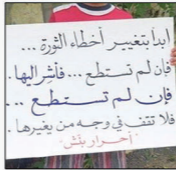 ابدأ بتغيير أخطاء الثورة ...
فإن لم تستطع ... فأشر إليها.
فإن لم تستطع ...
فلا تقف في وجه من يغيرها.
أحرار بنّش